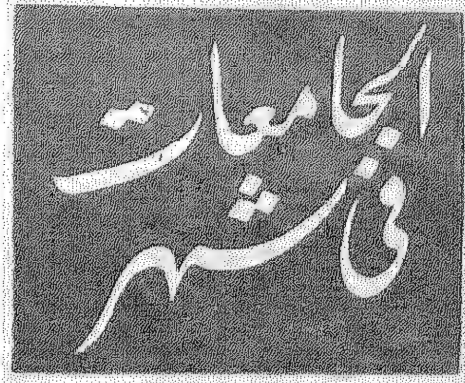 الجامعات
فى شهر